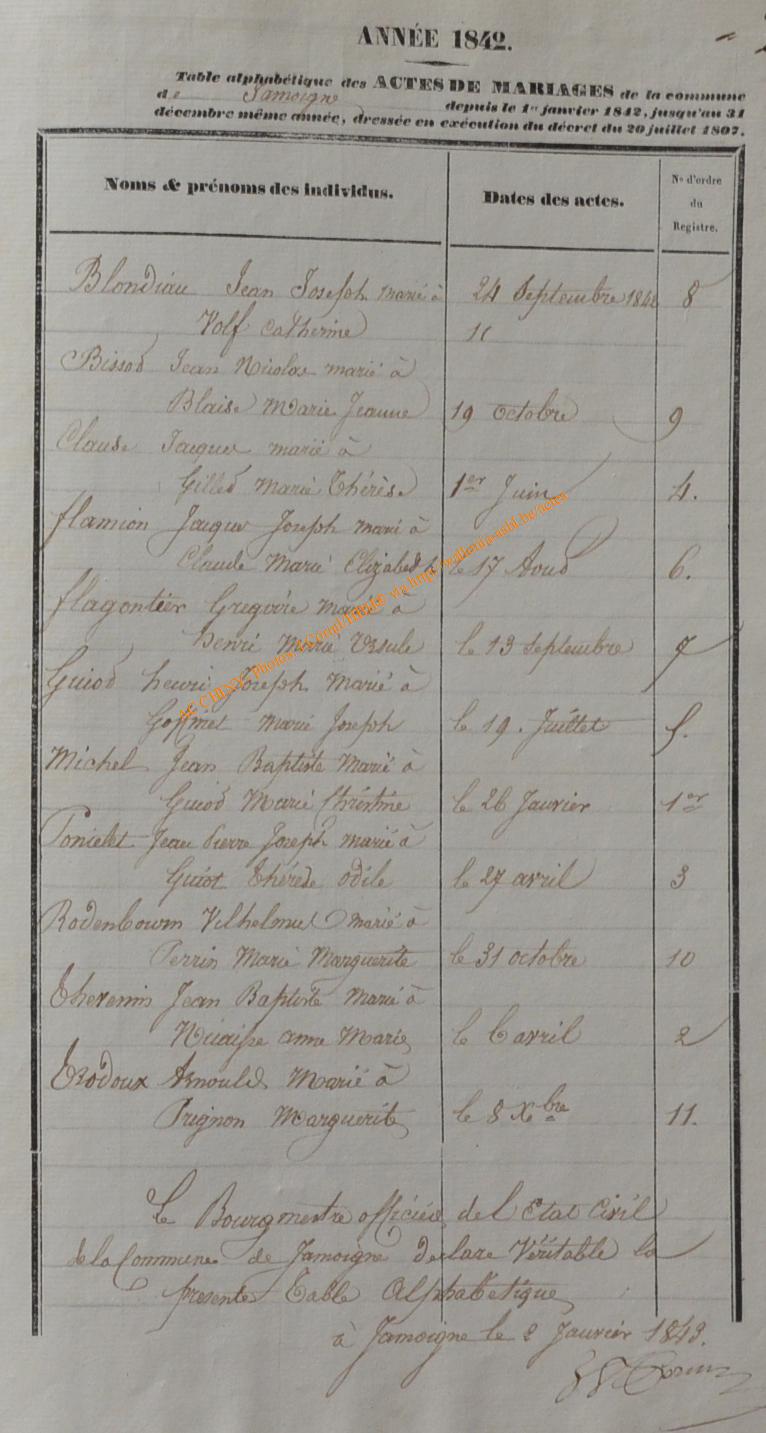 ANNÉE 1842.
Table alphabétique des ACTES DE MARIAGES de la commune
de Jamoigne depuis le 1er janvier 1842, jusqu'au 31
décembre même année, dressée en exécution du décret du 20 juillet 1807.
Noms & prénoms des individus. Dates des actes. No d'ordre du Registre.
Blondiau Jean Joseph marié à 24 Septembre 1842 8
Volf Catherine
Bissot Jean Nicolas marié à
Blaise Marie Jeanne 19 octobre 9
Claude Jacques marié à
Gillet Marie Thérèse 1er Juin 4.
flamion Jacque Joseph marié à
Claude Marie Elizabeth le 17 Aout 6.
flagontier Gregoire Marié à
henri Marie Ursule le 13 Septembre 7
Guiot henri Joseph Marié à
Goffinet Marie Joseph le 19. Juillet 5.
Michel Jean Baptiste Marié à
Guiot Marie Christine le 26 Janvier 1er
Poncelet Jean Pierre Joseph marié à
Guiot Thérèse odile le 27 avril 3
Rodenbourn Vilhelmus marié à
Perrin Marie Marguerite le 31 octobre 10
Thevenin Jean Baptiste Marié à
Nicaise anne Marie le 6 avril 2
Trodoux Arnould Marié à
Prignon Marguerite le 8 Xbre 11.
Le Bourgmestre officier de l Etat Civil
de la Commune de Jamoigne declare Véritable la
presente Table Alphabetique
à Jamoigne le 2 Janvier 1843.